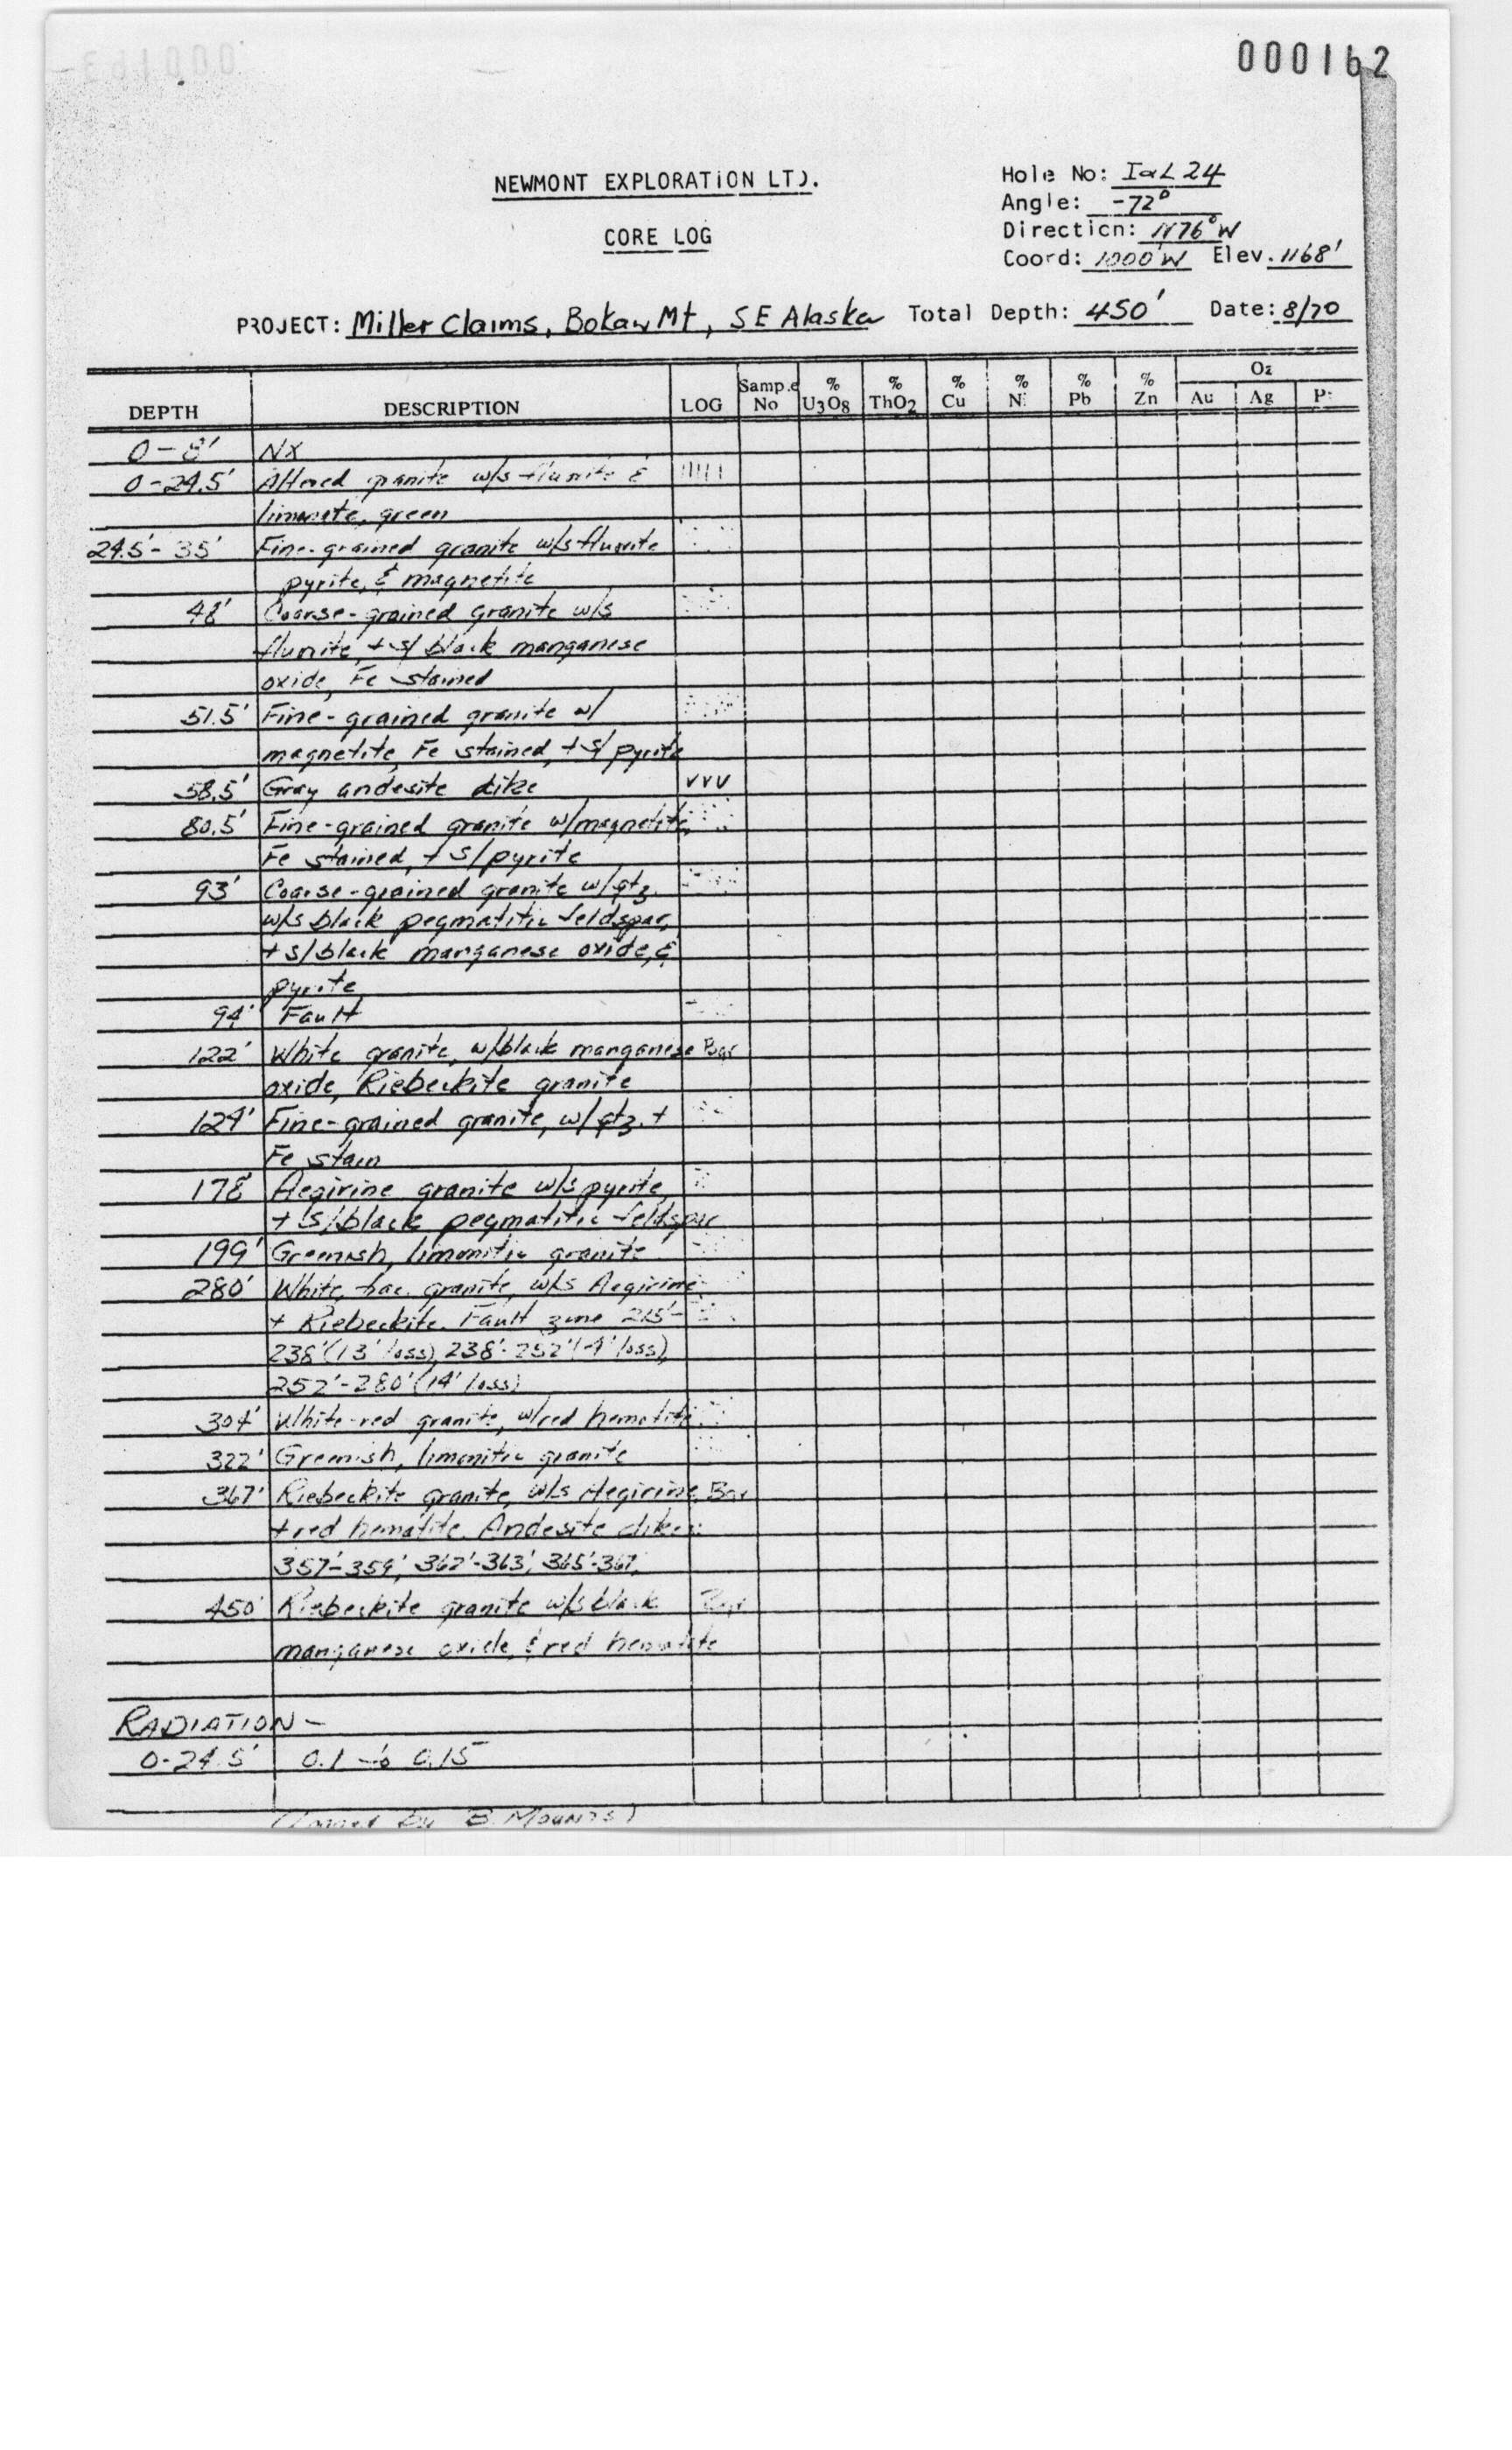 000162
NEWMONT EXPLORATION LTD.
CORE LOG
Hole No: I&L 24
Angle: -72°
Direction: N76°W
Coord: 1000'W Elev. 1168'
PROJECT: Miller Claims, Bokan Mt, SE Alaska Total Depth: 450' Date: 8/70
DEPTH DESCRIPTION LOG Sample No % U3O8 % ThO2 % Cu % Ni % Pb % Zn Oz Au Ag Pt
0-8' NX
0-24.5' Altered granite w/s fluorite &
limonite, green
24.5'-35' Fine-grained granite w/s fluorite
pyrite, & magnetite
48' Coarse-grained granite w/s
fluorite, + s/ black manganese
oxide, Fe stained
51.5' Fine-grained granite w/
magnetite, Fe stained, + s/ pyrite
58.5' Gray andesite dike VVV
80.5' Fine-grained granite w/magnetite,
Fe stained, + s/pyrite
93' Coarse-grained granite w/qtz.
w/s black pegmatitic feldspar,
+ s/black manganese oxide, &
pyrite
94' Fault
122' White granite, w/black manganese Bgr
oxide, Riebeckite granite
124' Fine-grained granite, w/qtz. +
Fe stain
178' Aegirine granite w/s pyrite,
+ s/black pegmatitic feldspar
199' Greenish, limonitic granite
280' White, granite, w/s Aegirine
+ Riebeckite. Fault zone 215'-
238' (13' loss), 238'-252' (4' loss),
252'-280' (14' loss)
304' White-red granite, w/red hematite
322' Greenish, limonitic granite
367' Riebeckite granite, w/s Aegirine, Bgr
+ red hematite. Andesite dikes:
357'-359', 362'-363', 365'-367'
450' Riebeckite granite w/s black Bgr
manganese oxide, & red hematite
RADIATION-
0-24.5' 0.1 to 0.15
by B. Mounts)